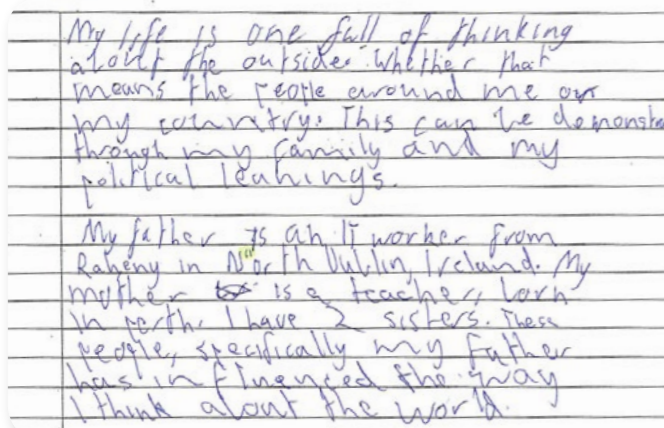 My life is one full of thinking
about the outside. Whether that
means the people around me or
my country. This can be demonstra
through my family and my
political leanings.
My father is an IT worker from
Raheny in North Dublin, Ireland. My
mother is a teacher, born
in perth. I have 2 sisters. These
people, specifically my father
has influenced the way
I think about the world.